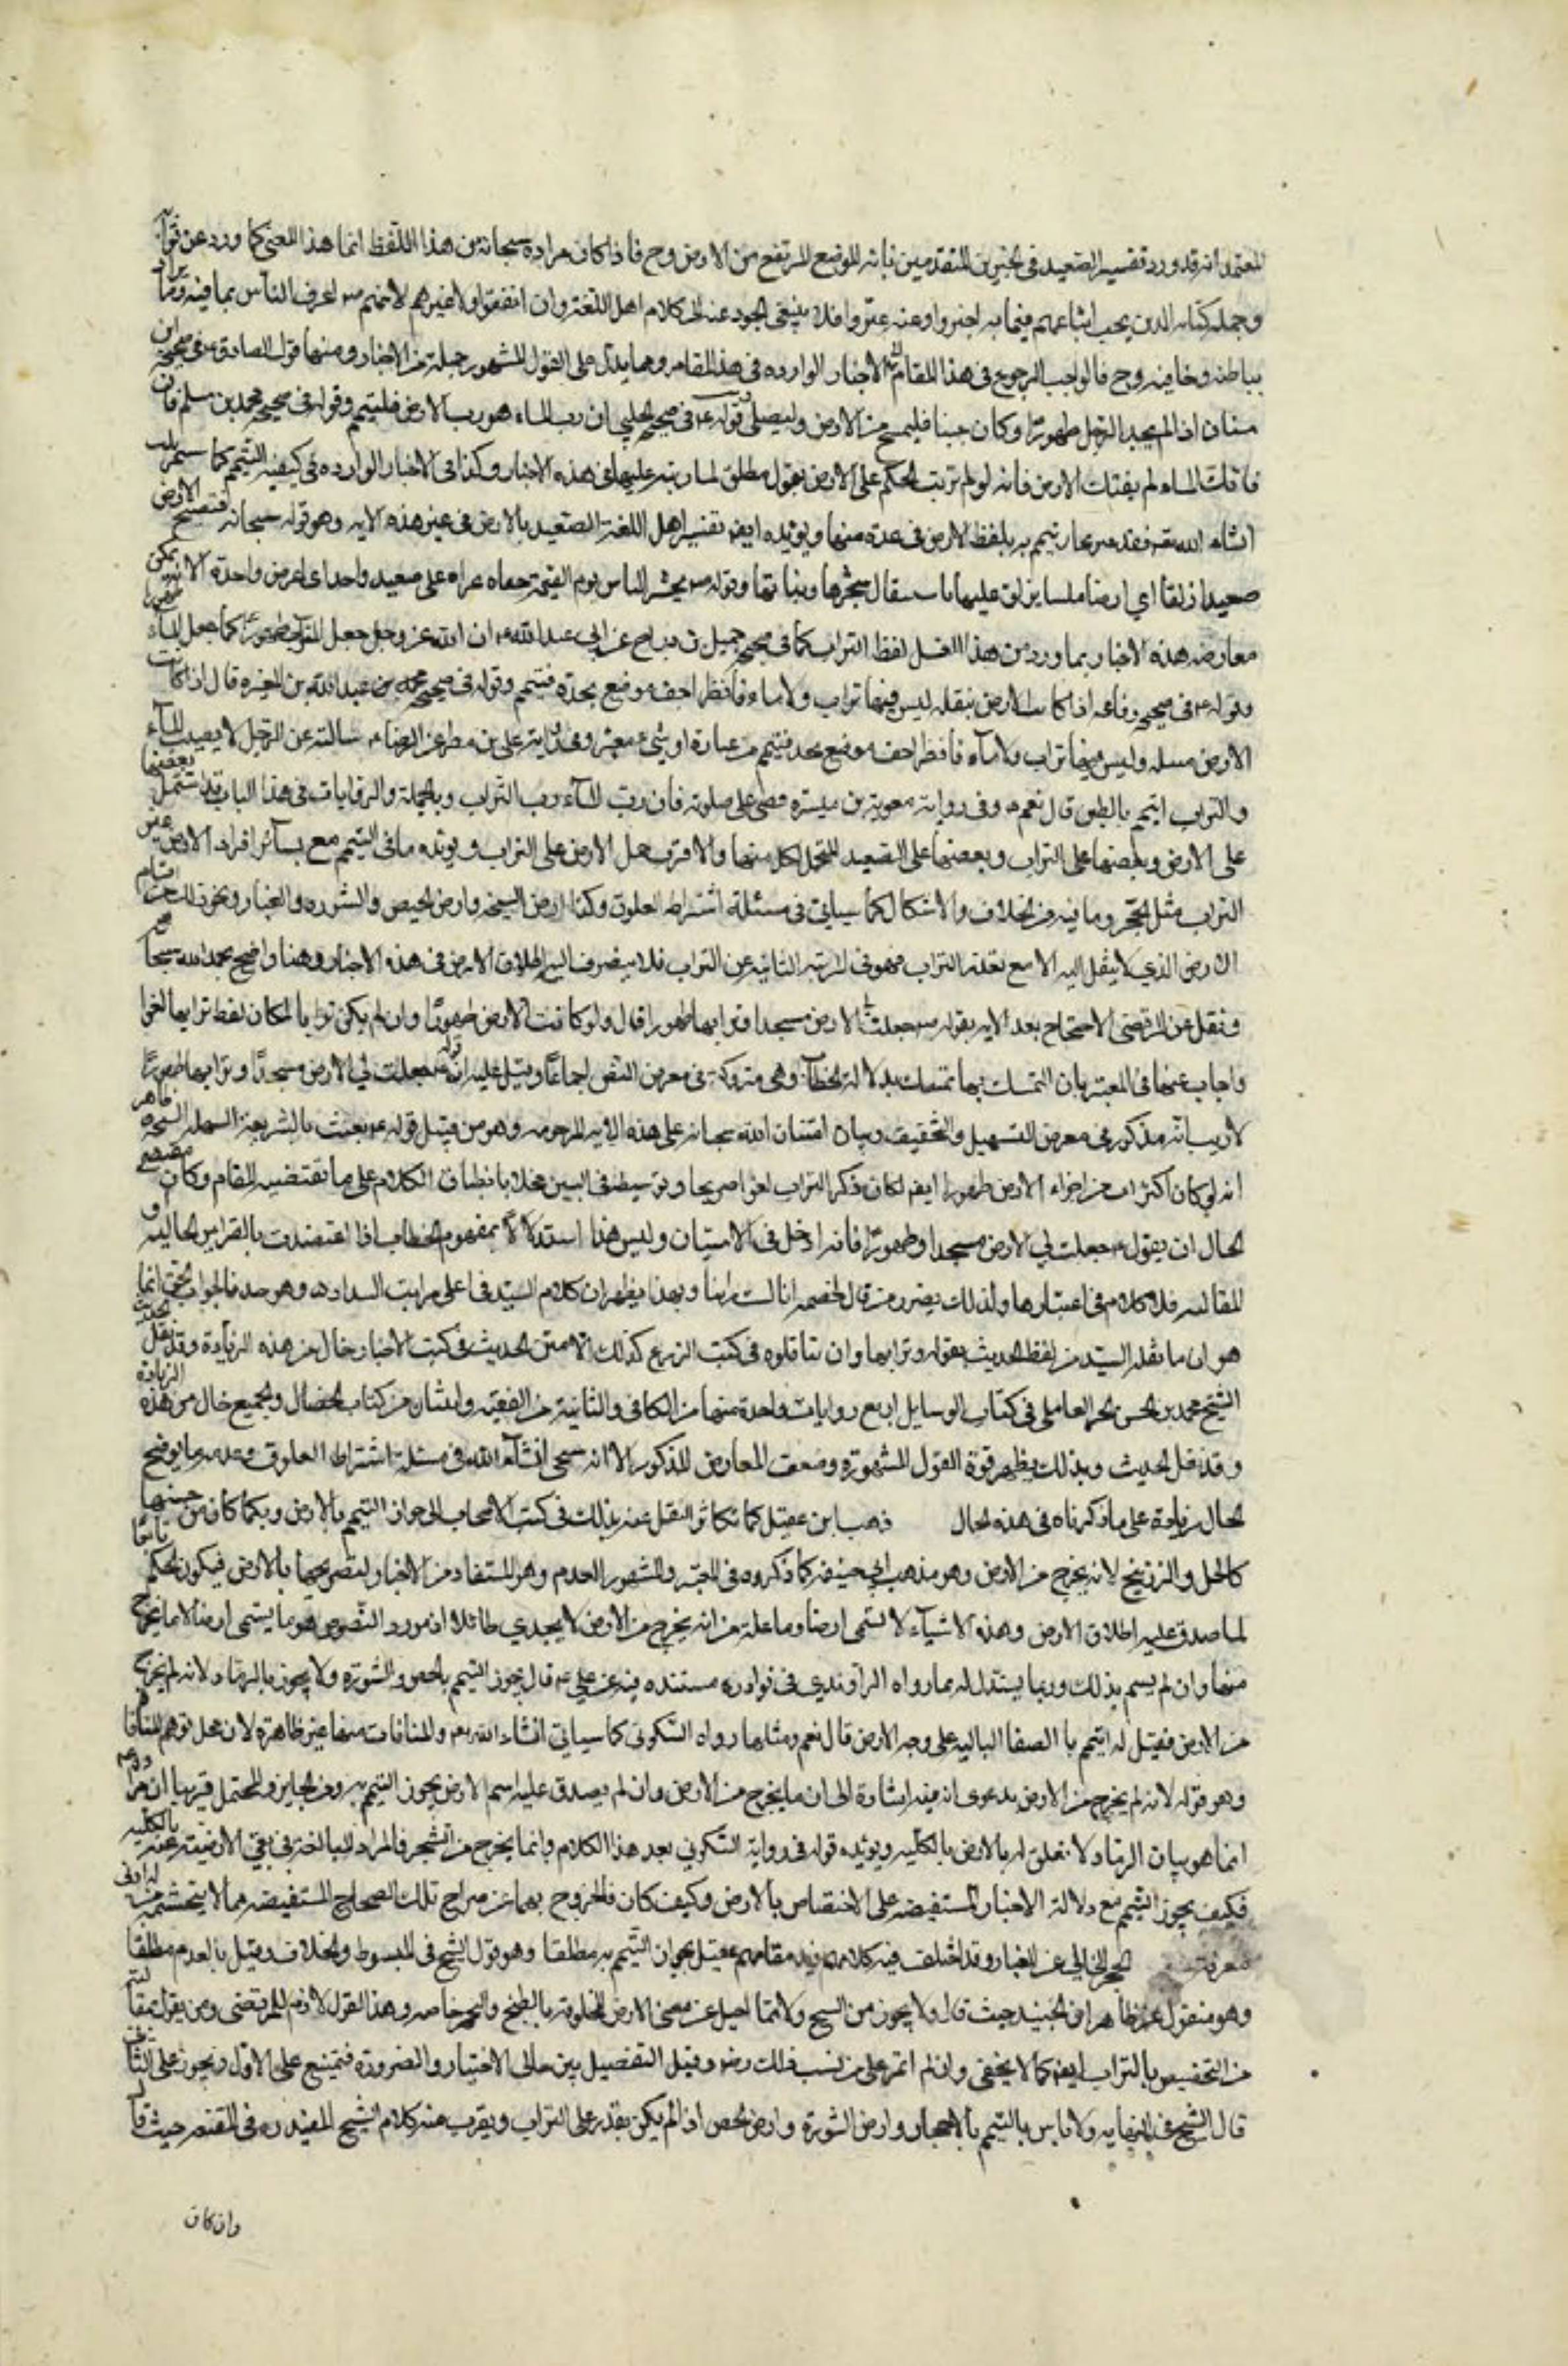 المعتمد انه قد ورد تفسير الصعيد في الخبرين المتقدمين بانه الموضع المرتفع من الارض وح فاذا كان مراده سبحانه من هذا اللفظ انما هذا المعنى كما ورد عن
وحملة كتابه الذين يجب اتباعهم فيما به اخبروا وعنه عبروا فلا ينبغي الجمود عنه الى كلام اهل اللغة وان اتفقوا ولا غيرهم لانهم اعرف الناس بما فيه
بباطنه وخافيه وح فالواجب الرجوع في هذا المقام الى الاخبار الوارده في هذا المقام ومما يدل على القول المشهور جملة من الاخبار ومنها قول الصادق في صحيحة ابن
سنان اذا لم يجد الرجل طهورا وكان جنبا فليمسح من الارض وليصلي وقوله في صحيح الحلبي ان رب الماء هو رب الارض فليتيمم وقوله في صحيح محمد بن مسلم فان
فاتك الماء لم يفتك الارض فانه لو لم ترتب الحكم على الارض بقول مطلق لما رتبه عليها في هذه الاخبار وكذا في الاخبار الوارده في كيفية التيمم كما ستمر بك
انشاء الله فقد عبر عما يتيمم به بلفظ الارض في عدة منها ويؤيده ايضا تفسير اهل اللغة الصعيد بالارض في غير هذه الايه وهو قوله سبحانه فتصبح
صعيدا زلقا اي ارضا ملسا يزلق عليها باستئصال شجرها ونباتها وقوله يحشر الناس يوم القيمة حفاة عراة على صعيد واحد اي ارض واحدة الا انه يمكن
معارضة هذه الاخبار بما ورد من هذا القبيل لفظ التراب كما في صحيح جميل بن دراج عن ابي عبدالله ان الله عز وجل جعل التراب طهورا كما جعل الماء
وقوله في صحيح رفاعه اذا كانت الارض مبتله ليس فيها تراب ولا ماء فانظر اجف موضع تجده فتيمم وقوله في صحيح عبدالله بن المغيره قال اذا كانت
الارض مبتله وليس فيها تراب ولا ماء فانظر اجف موضع تجده فتيمم من غباره او شيء مغبر وفي رواية علي بن مطر عن الرضا سالته عن الرجل لا يصيب الماء
والتراب ايتيمم بالطين قال نعم وفي رواية معوية بن ميسره يمضي على صلوته فان رب الماء رب التراب وبالجملة والروايات في هذا الباب قد اشتمل بعضها
على الارض وبعضها على التراب وبعضها على الصعيد المحتمل لكل منها والاقرب حمل الارض على التراب ويؤيده ما في التيمم مع بسائر افراد الارض غير
التراب مثل الحجر وما فيه من الخلاف والاشكال كما سياتي في مسئلة اشتراط العلوق وكذا ارض السبخه وارض الجص والنوره والغبار ونحو ذلك من اقسام
الارض الذي لا ينقل اليه الا مع تعذر التراب فهو في المرتبه الثانيه عن التراب فلا ينصرف اليه اطلاق الارض في هذه الاخبار وهذا واضح بحمد الله
ونقل عن المرتضى الاحتجاج بعد الايه بقوله جعلت لي الارض مسجدا وترابها طهورا قال ولو كانت الارض طهورا وان لم يكن ترابا لكان لفظ ترابها لغوا
واجاب عنها في المعتبر بان التمسك بها تمسك بدلالة الخطاب وهي متروكة في معرض النص اجماعا وقيل عليه ان قوله جعلت لي الارض مسجدا وترابها طهورا
لا ريب انه مذكور في معرض التسهيل والتخفيف وبيان امتنان الله سبحانه على هذه الامه المرحومه وهو من قبيل قوله بعثت بالشريعة السهله السمحه
انه لو كان اكثر اجزاء الارض طهورا ايضا لكان ذكر التراب لغوا صريحا وتوسيطه في البين مخلا بانطباق الكلام على ما تقتضيه المقام وكان مقتضى
الحال ان يقول جعلت لي الارض مسجدا وطهورا فانه ادخل في الامتنان وليس هذا استدلالا بمفهوم الخطاب اذا اعتضدت بالقراين الحاليه و
المقاليه فلا كلام في اعتبارها ولذلك يضرر من قال لخصمه انا لست زانيا وبهذا يظهر ان كلام السيد في اعلى مراتب السداد وهو جيد فالجواب الحق انما
هو ان ما نقله السيد من لفظ الحديث بقوله وترابها وان تناقلوه في كتب الفروع كذلك الا متن الحديث في كتب الاخبار خال من هذه الزيادة وقد نقل
الشيخ محمد بن الحسن الحر العاملي في كتاب الوسايل اربع روايات واحدة منها من الكافي والثانية من الفقيه واثنتان من كتاب الخصال والجميع خال من هذه الزيادة
وقد نقل الحديث وبذلك يظهر قوة القول المشهورة وضعف المعارض المذكور الا انه سيجي انشاء الله في مسئلة اشتراط العلوق وعدمه ما يوضح
الحال زيادة على ما ذكرناه في هذه الحال ذهب ابن عقيل كما تكاثر النقل عنه بذلك في كتب الاصحاب الى جواز التيمم بالارض وبكما كان من جنسها
كالكحل والزرنيخ لانه يخرج من الارض وهو مذهب ابي حنيفه كما ذكروه في المعتبر والمشهور العدم وهو المستفاد من الاخبار لتصريحها بالارض فيكون الحكم
لما صدق عليه اطلاق الارض وهذه الاشياء لا تسمى ارضا وما علله من انه يخرج من الارض لا يجدي طائلا اذ مورد النصوص هو ما يسمى ارضا لا ما يخرج
منها وان لم يسم بذلك وربما يستدل له بما رواه الراوندي في نوادره مسنده فيه عن علي قال يجوز التيمم بالجص والنورة ولا يجوز بالرماد لانه لم يخرج
من الارض فقيل له ايتيمم بالصفا الباليه على وجه الارض قال نعم ومثلها رواه السكوني كما سياتي انشاء الله والمنافات منها غير ظاهرة لان محل توهم المنافا
وهو قوله لانه لم يخرج من الارض بدعوى ان فيه اشارة الى ان ما يخرج من الارض وان لم يصدق عليه اسم الارض يجوز التيمم به ومن الجايز والمحتمل قريبا ان
انما هو بيان الرماد لا تعلق له بالارض بالكلية ويؤيده قوله في رواية السكوني بعد هذا الكلام وانما يخرج من الشجر فالمراد المبالغة في نفي الارضية عنه بالكلية
فكيف يجوز التيمم مع دلالة الاخبار المستفيضه على الاختصاص بالارض وكيف كان فالخروج بها عن صراح تلك الصحاح المستفيضه مما لا يتجشمه من له ادنى
معرفة الحجر الخالي عن الغبار وقد اختلف فيه كلامهم فقيل بجواز التيمم به مطلقا وهو قول الشيخ في المبسوط والخلاف وقيل بالعدم مطلقا
وهو منقول عن ظاهر ابن الجنيد حيث قال ولا يجوز من السبخ ولا مما احيل عن معنى الارض المخلوقة بالطبخ والتحجر خاصه وهذا القول لازم للمرتضى ومن يقول
من التخصيص بالتراب ايضا كما لا يخفى وان لم اعثر على من نسب ذلك وقيل التفصيل بين حالي الاختيار والضرورة فيمتنع على الاول ويجوز على
قال الشيخ في النهايه ولا باس بالتيمم بالاحجار وارض النورة وارض الجص اذا لم يكن يقدر على التراب ويقرب منه كلام الشيخ المفيد في المقنعه حيث قال
وان كان